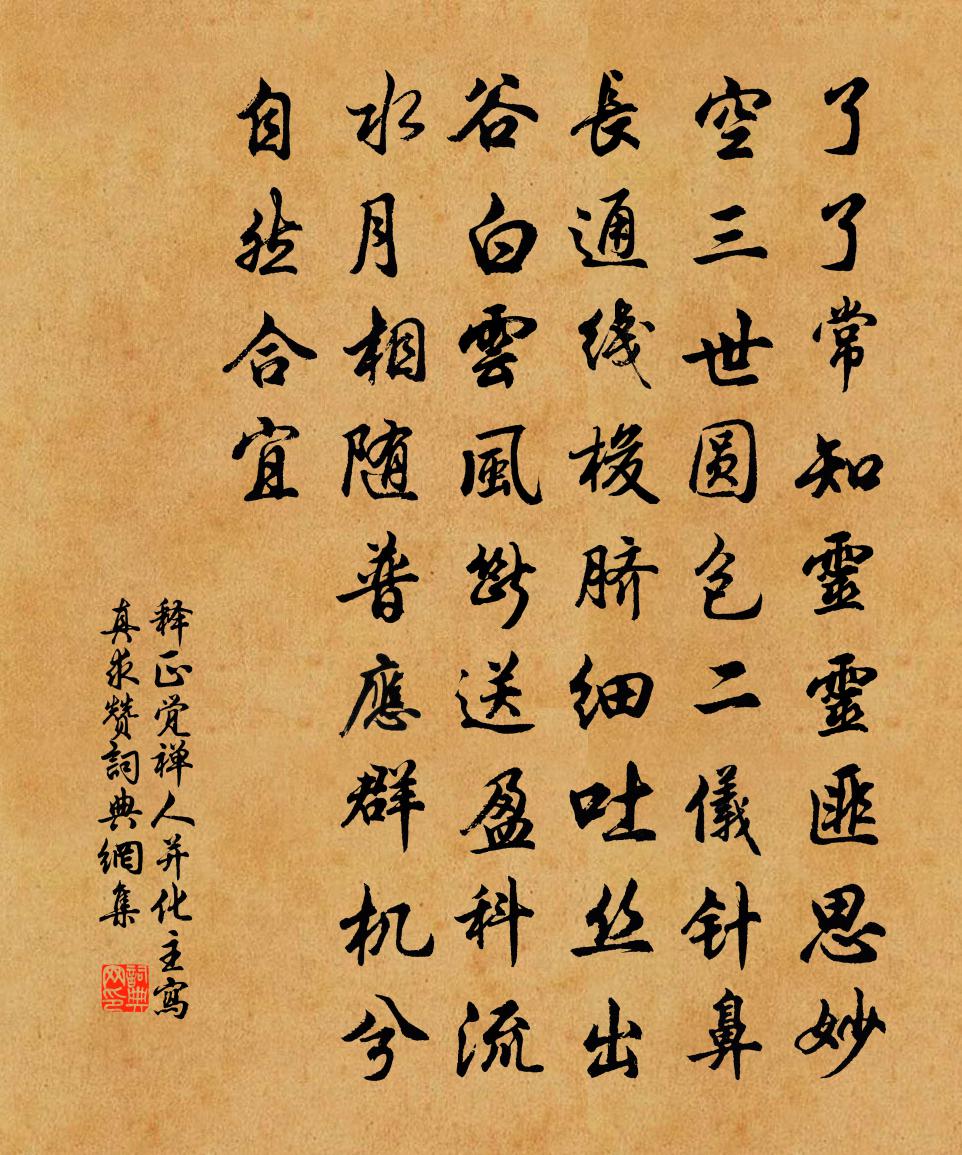 了了常知靈靈匪思妙
空三世圆包二儀针鼻
長通线梭脐细吐丝出
谷白雲風断送盈科流
水月相随普應群机兮
自然合宜
释正觉禅人并化主寫
真求赞詞典網集
詞典
网印